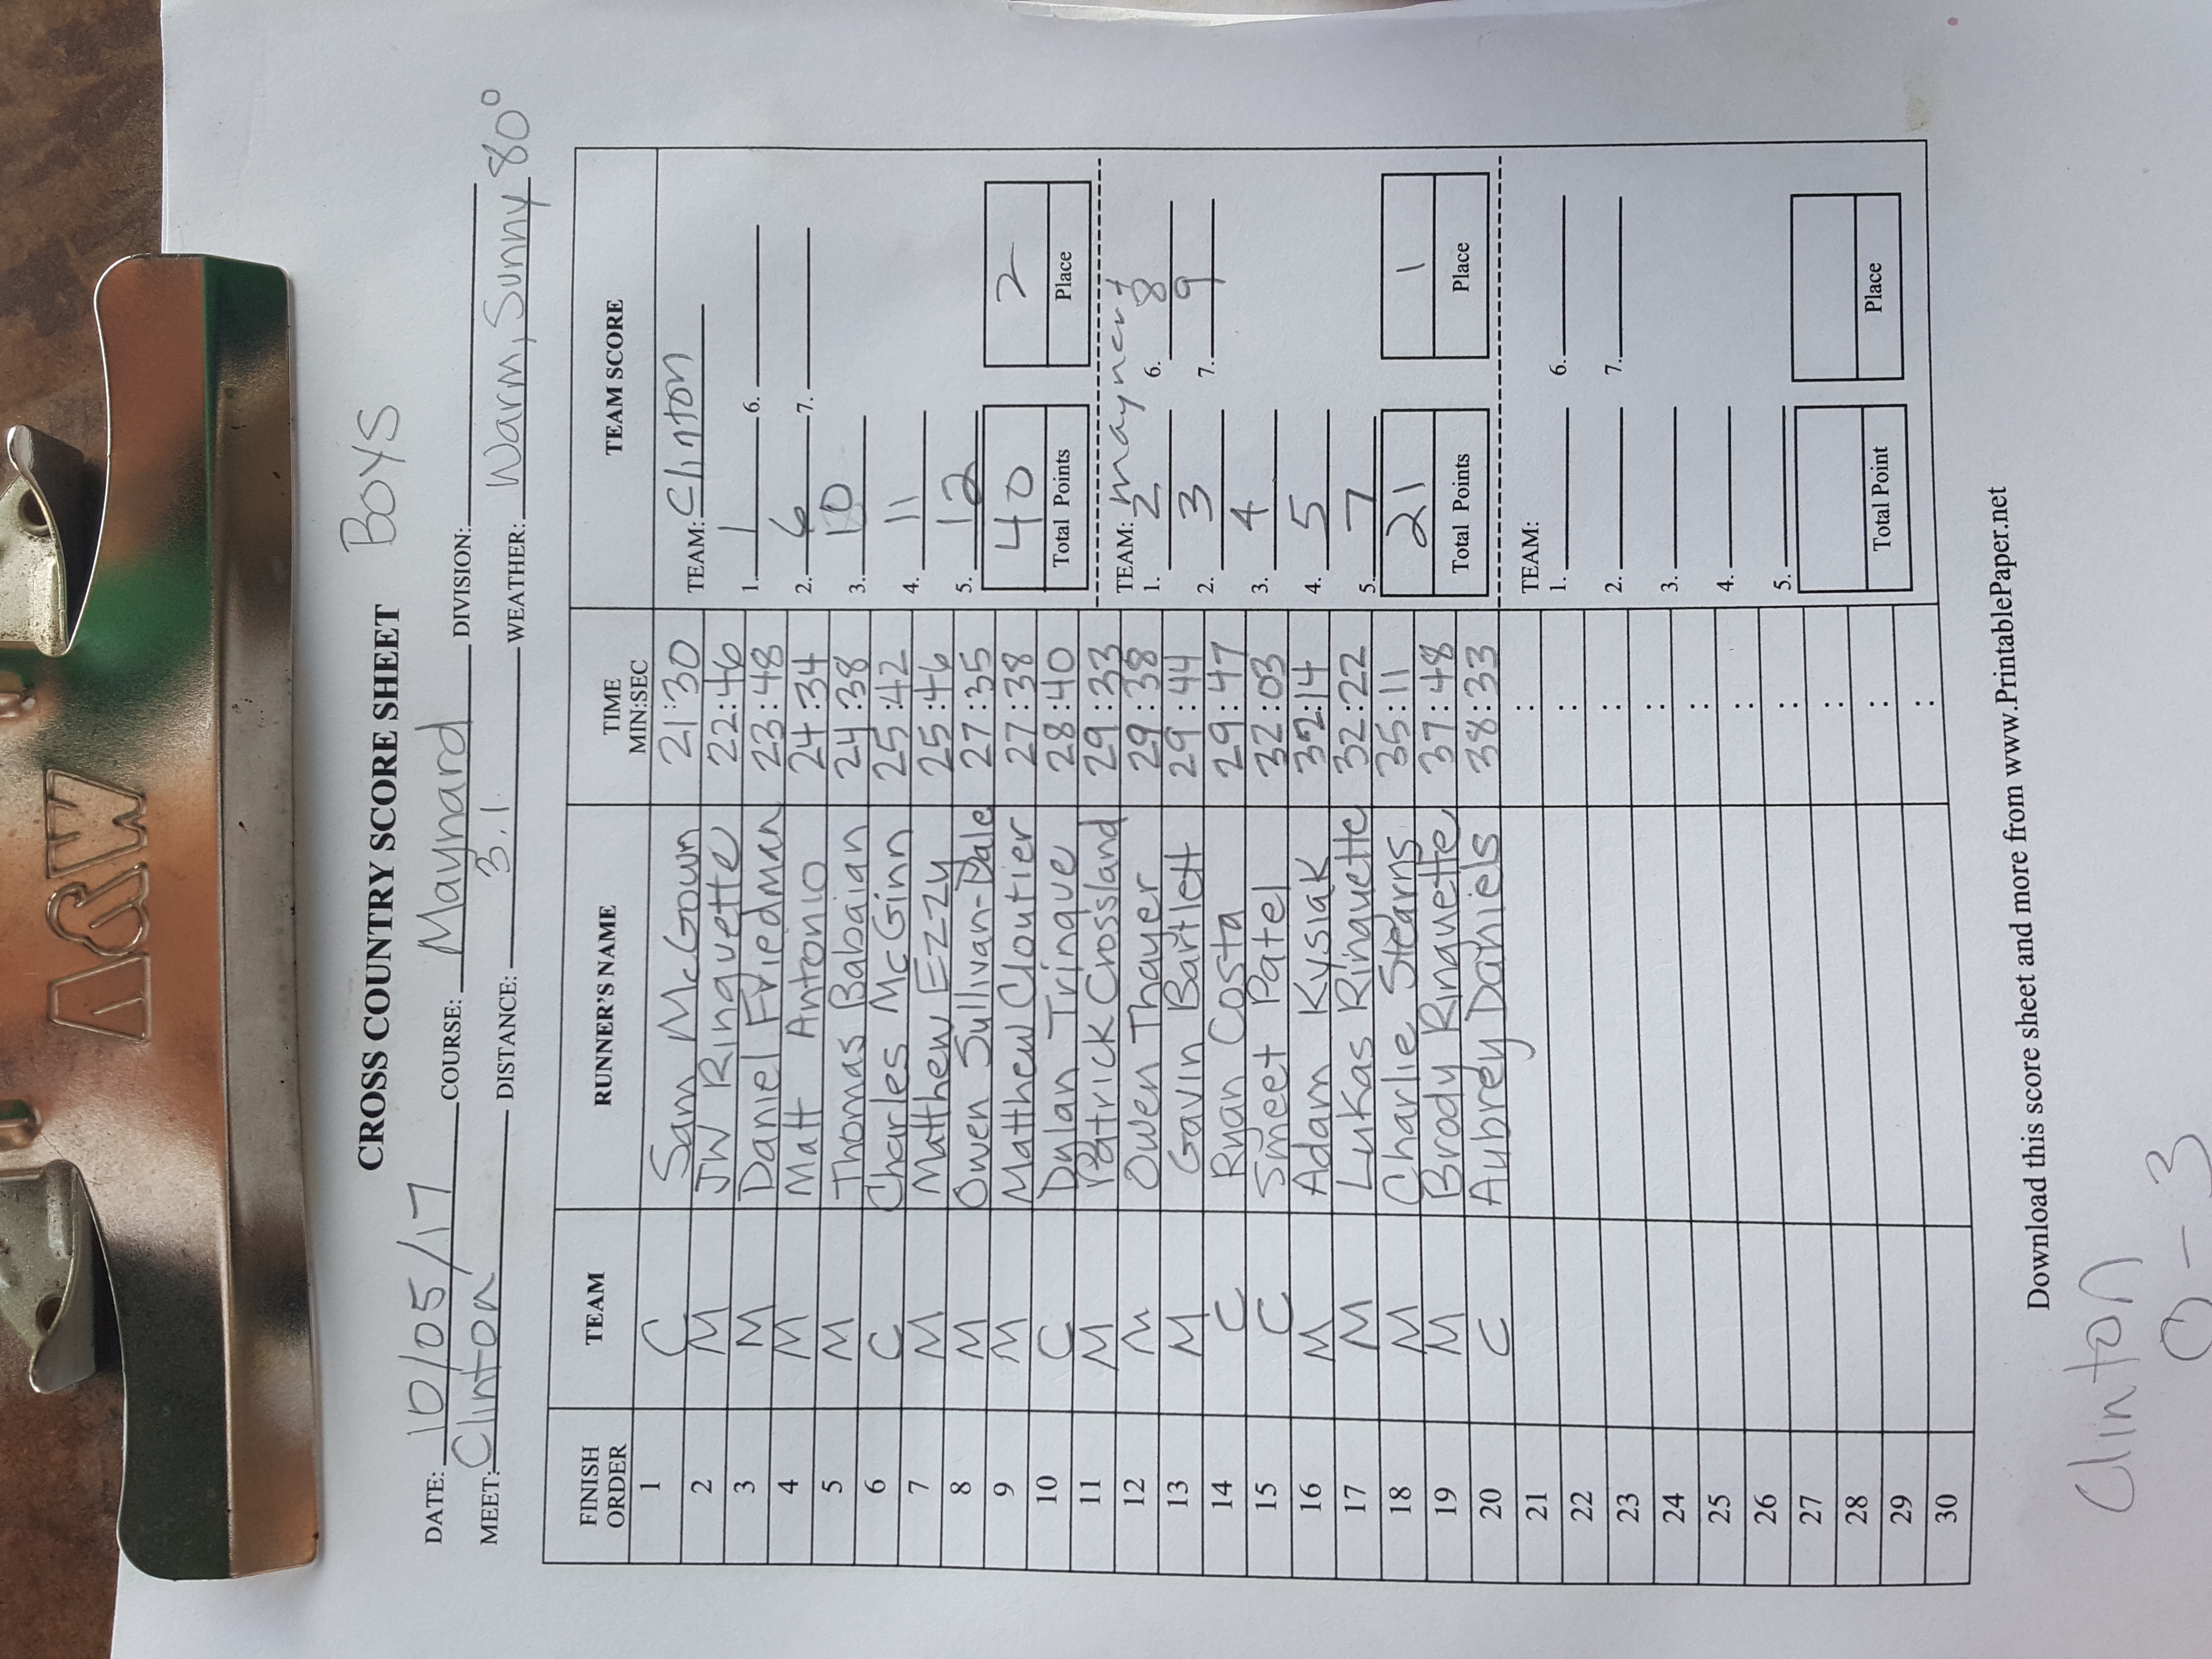 A&W
CROSS COUNTRY SCORE SHEET BOYS
DATE: 10/05/17 COURSE: Maynard DIVISION:
MEET: Clinton DISTANCE: 3.1 WEATHER: Warm, Sunny 80°
FINISH ORDER TEAM RUNNER'S NAME TIME MIN:SEC
1 C Sam McGown 21:30
2 M JW Ringuette 22:46
3 M Daniel Friedman 23:48
4 M Matt Antonio 24:34
5 M Thomas Babaian 24:38
6 C Charles McGinn 25:42
7 M Matthew Ezzy 25:46
8 M Owen Sullivan-Dale 27:35
9 M Matthew Cloutier 27:38
10 C Dylan Trinque 28:40
11 M Patrick Crossland 29:33
12 M Owen Thayer 29:38
13 M Gavin Bartlett 29:44
14 C Ryan Costa 29:47
15 C Smeet Patel 32:03
16 M Adam Kysiak 32:14
17 M Lukas Ringuette 32:22
18 M Charlie Stearns 35:11
19 M Brody Ringuette 37:48
20 C Aubrey Daniels 38:33
21 :
22 :
23 :
24 :
25 :
26 :
27 :
28 :
29 :
30 :
TEAM SCORE
TEAM: Clinton
1. 1 6.
2. 6 7.
3. 10
4. 11
5. 12
40 2
Total Points Place
TEAM: Maynard
1. 2 6. 8
2. 3 7. 9
3. 4
4. 5
5. 7
21 1
Total Points Place
TEAM:
1. 6.
2. 7.
3.
4.
5.
Total Point Place
Download this score sheet and more from www.PrintablePaper.net
Clinton
0-3